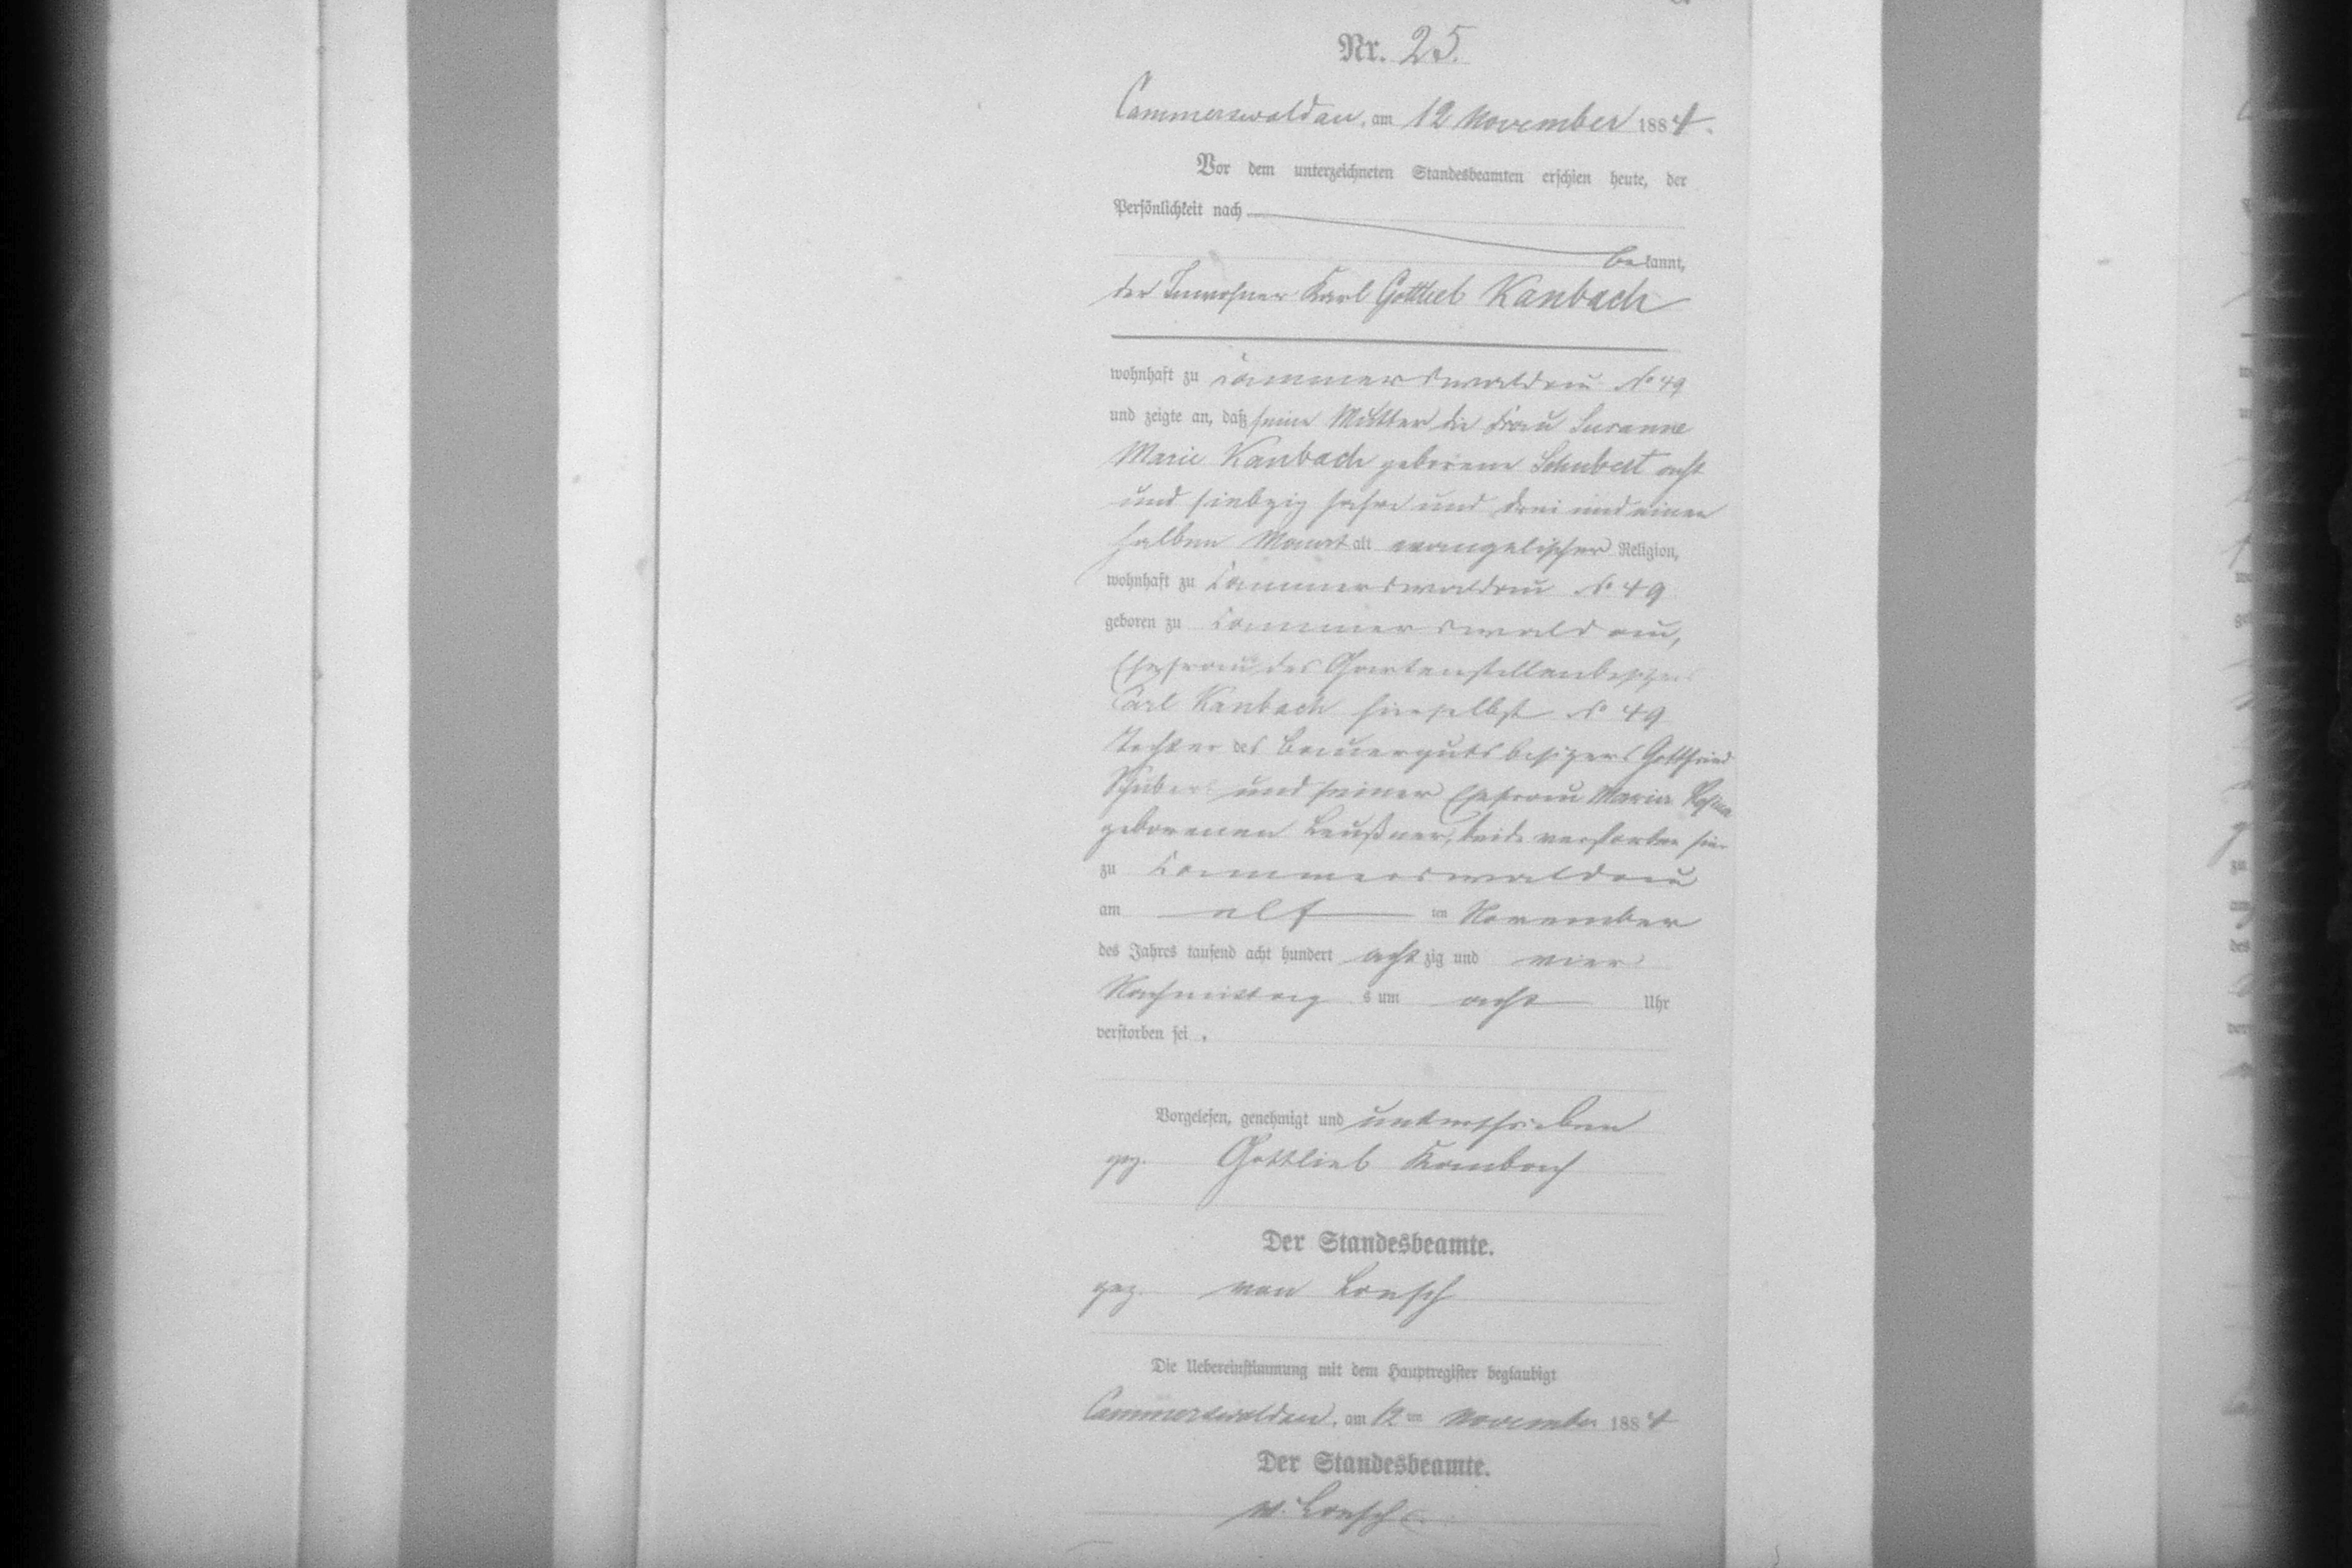 Nr. 25.
Cammerswaldau, am 12 November 1884.
Vor dem unterzeichneten Standesbeamten erschien heute, der
Persönlichkeit nach
bekannt,
der Inwohner Karl Gottlieb Kanbach
wohnhaft zu Cammerswaldau No 49
und zeigte an, daß seine Mutter die Frau Susanne
Marie Kanbach geborene Schubert acht
und siebzig Jahre und drei und einen
halben Monat alt evangelischer Religion,
wohnhaft zu Cammerswaldau No 49
geboren zu Cammerswaldau,
Ehefrau des Gartenstellenbesitzers
Carl Kanbach hierselbst No 49
Tochter des Bauergutsbesitzers Gottfried
Schubert und seiner Ehefrau Maria Rosina
geborenen Leußner, beide verstorben hier
zu Cammerswaldau
am elf ten November
des Jahres tausend acht hundert achtzig und vier
Nachmittags um acht Uhr
verstorben sei.
Vorgelesen, genehmigt und unterschrieben
gez. Gottlieb Kanbach
Der Standesbeamte.
gez. von
Die Uebereinstimmung mit dem Hauptregister beglaubigt
Cammerswaldau, am 12ten November 1884
Der Standesbeamte.
v.